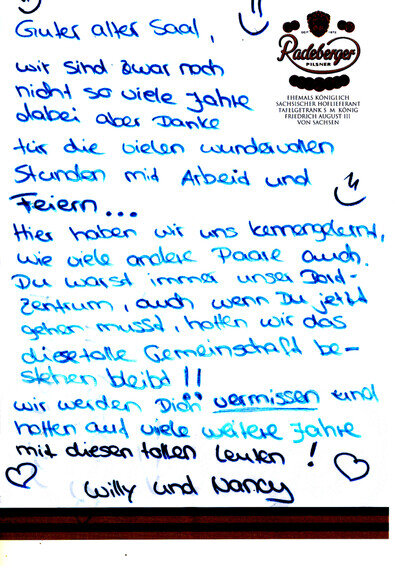 Guter alter Saal,
wir sind zwar noch
nicht so viele Jahre
dabei aber Danke
für die vielen wundervollen
Stunden mit Arbeid und
Feiern...
Hier haben wir uns kennengelernt,
wie viele andere Paare auch.
Du warst immer unser Dorf-
zentrum, auch wenn Du jetzt
gehen musst, hoffen wir das
diese tolle Gemeinschaft be-
stehen bleibt!!
wir werden Dich vermissen und
hoffen auf viele weitere Jahre
mit diesen tollen Leuten!
Willy und Nancy
Radeberger
PILSNER
EHEMALS KÖNIGLICH
SÄCHSISCHER HOFLIEFERANT
TAFELGETRÄNK S. M. KÖNIG
FRIEDRICH AUGUST III
VON SACHSEN